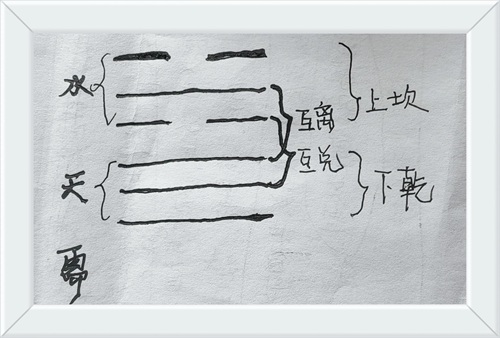 水
互离
上坎
互兑
天
下乾
需